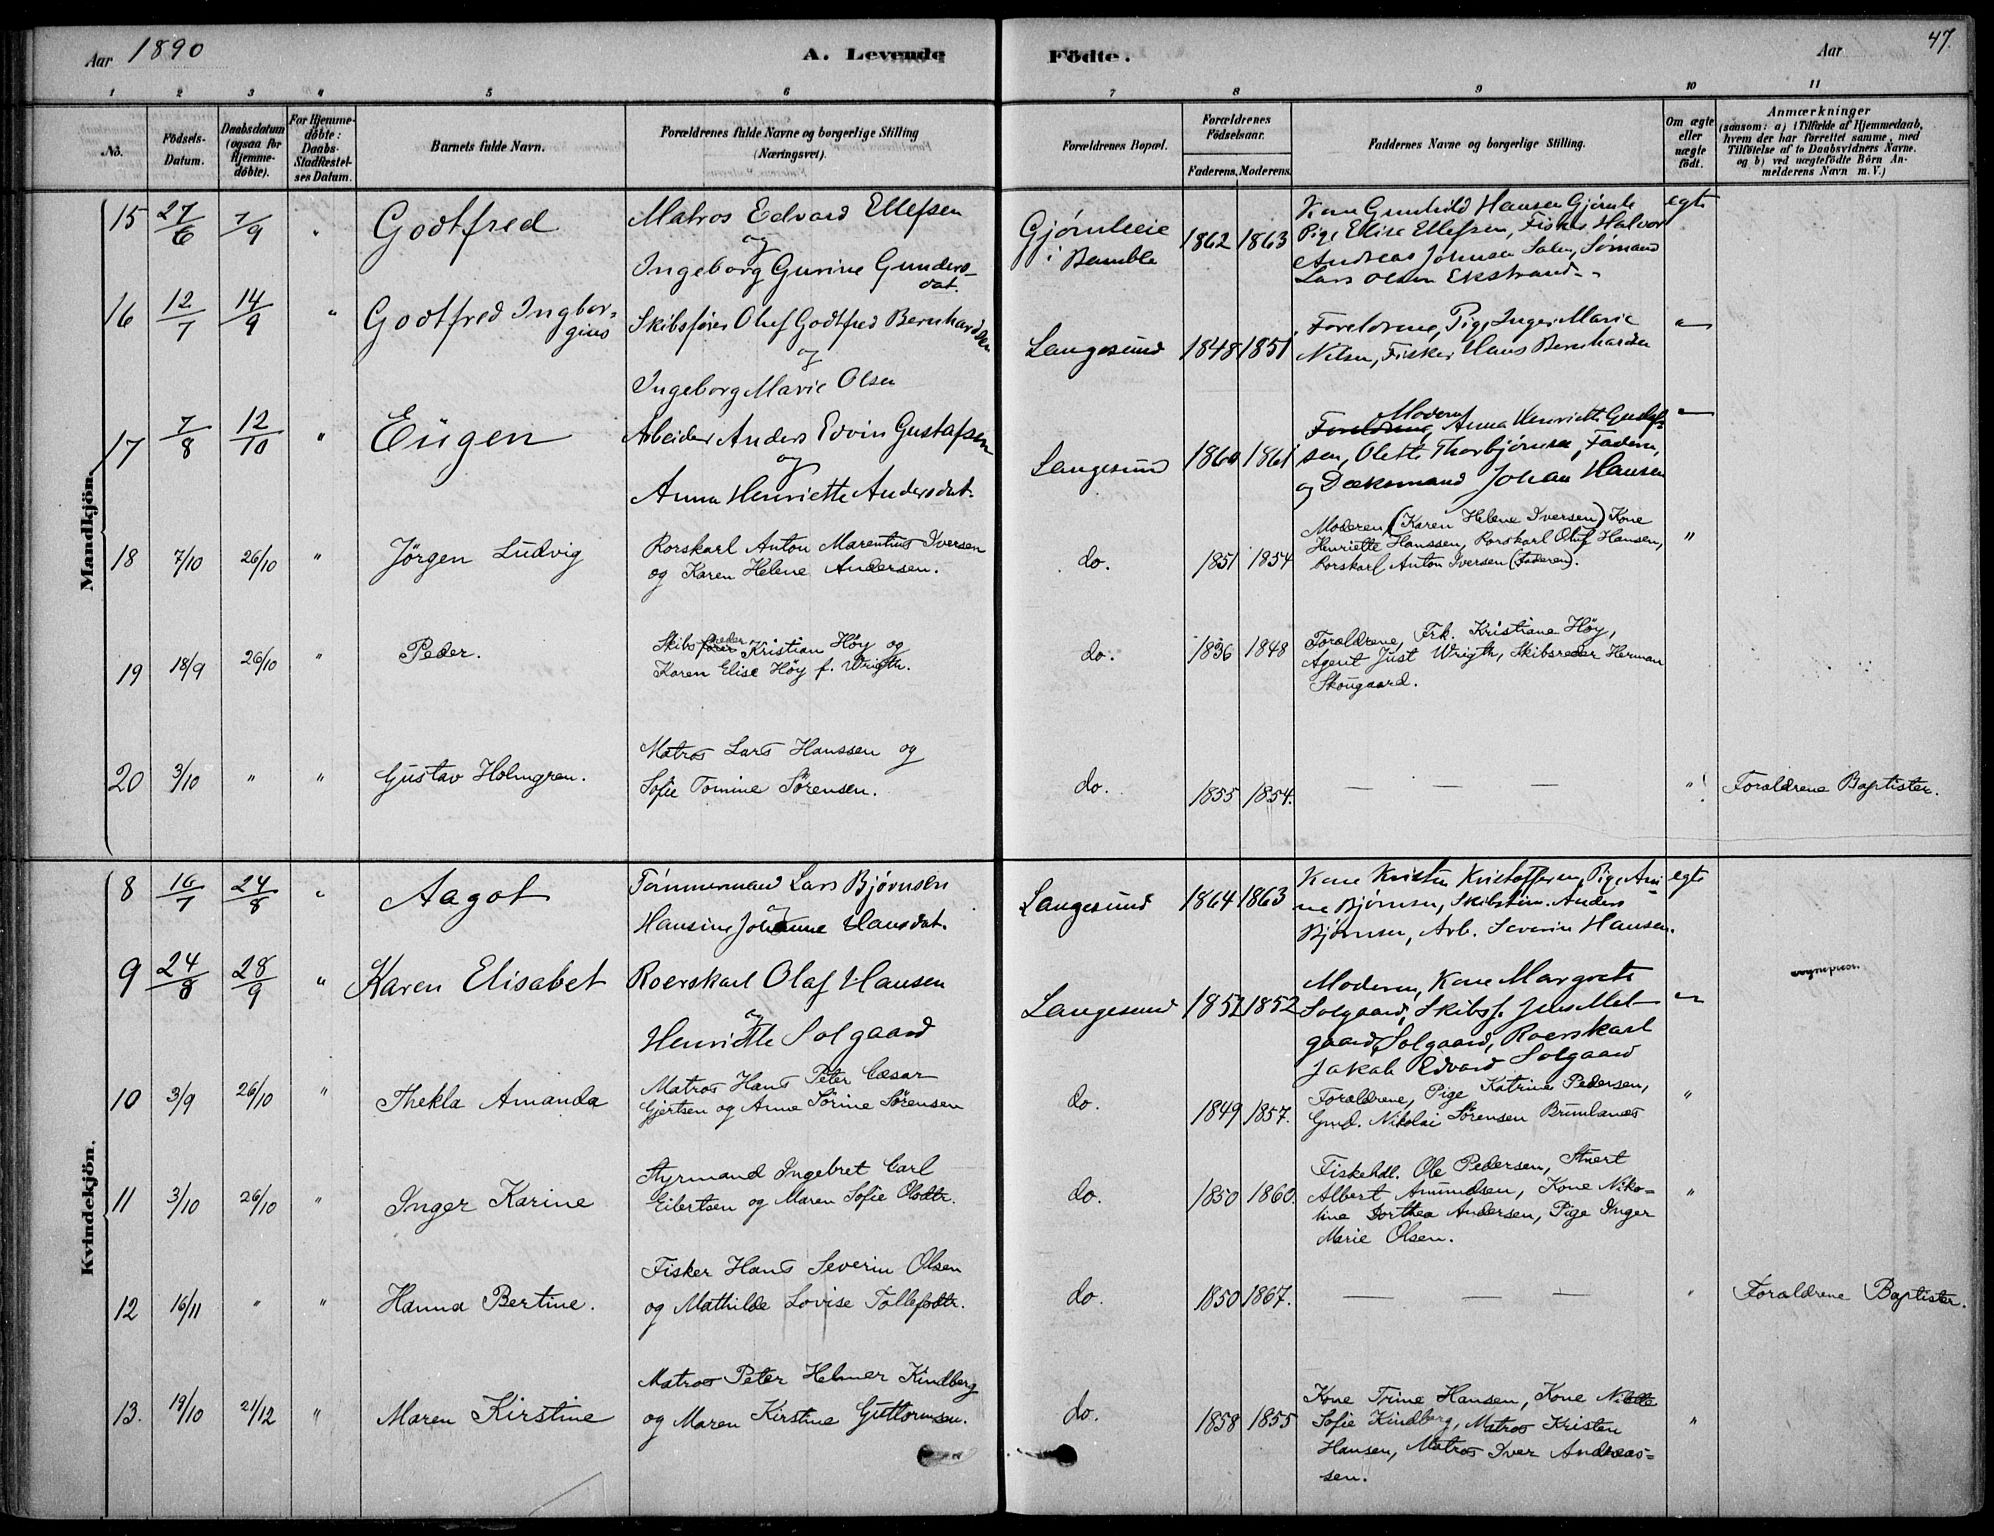 Aar 1890
A. Levende Födte.
Aar
47.
1 2 3 4 5 6 7 8 9 10 11
No.
Födsels-Datum.
Daabsdatum (ogsaa for Hjemme-döbte).
For Hjemme-döbte: Daabs-Stadfæstel-ses Datum.
Barnets fulde Navn.
Forældrenes fulde Navne og borgerlige Stilling (Næringsvei).
Forældrenes Bopæl.
Forældrenes Födselsaar.
Faderens. Moderens.
Faddernes Navne og borgerlige Stilling.
Om ægte eller uægte födt.
Anmærkninger
(saasom: a) i Tilfælde af Hjemmedaab, hvem der har forrettet samme, med Tilföielse af to Daabsvidners Navne. og b) ved uægtefödte Börn An-melderens Navn m. V.)
Mandkjön.
15 27/6 7/9 " Godtfred
Matros Edvard Ellefsen
og
Ingeborg Gurine Gunders-
dat.
Gjømleie
i Bamble
1862 1863
Kone Gunhild Hansen Gjømle
Pige Elise Ellefsen, Fisker Halvor
Andreas Johnsen Salen, Sømand
Lars Olsen Ekstrand
egte
16 12/7 14/9 " Godtfred Ingbor-
gius
Skibsfører Oluf Godtfred Bernhardsen
og
Ingeborg Marie Olsen
Langesund 1848 1851
Foreldrene, Pige Inger Marie
Nilsen, Fisker Hans Bernhardsen
"
17 7/8 12/10 " Eügen
Arbeider Anders Edvin Gustafsen
og
Anna Henriette Andersdat.
Langesund 1860 1861
Moderen
Foreldrene, Anna Henriette Gustaf-
sen, Olette Thorbjørnsen, Faderen,
og Dæksmand Johan Hansen
"
18 7/10 26/10 " Jörgen Ludvig
Rorskarl Anton Marentius Iversen
og Karen Helene Andersen.
do. 1851 1854
Moderen (Karen Helene Iversen) Kone
Henriette Hanssen, Rorskarl Oluf Hansen,
Rorskarl Anton Iversen (Faderen).
"
19 18/9 26/10 " Peder.
Skibsfører reder Kristian Höy og
Karen Elise Höy f. Wrigth.
do. 1836 1848
Forældrene, Frk. Kristiane Höy,
Agent Just Wrigth, Skibsreder Herman
Skougaard.
20 3/10 " " Gustav Holmgren.
Matros Lars Hanssen og
Sofie Tomine Sörensen.
do. 1855 1854.
— — —
"
Forældrene Baptister.
Kvindekjön.
8 16/7 24/8 " Aagot
Tømmermand Lars Bjørnsen
og
Hansine Johanne Hansdat.
Langesund 1864 1863
Kone Kristen Kristoffersen, Pige Ami
ne Bjørnsen, Skibstøm. Anders
Bjørnsen, Arb. Severin Hansen.
egte
9 24/8 28/9 " Karen Elisabet
Roerskarl Olaf Hansen
og
Henriette Solgaard
Langesund 1852 1852
Moderen, Kone Margrete
Solgaard, Skibsf. Jens Mel-
gaard Solgaard, Roerskarl
Jakob Edvard Solgaard
"
10 3/9 26/10 " Thekla Amanda
Matros Hans Peter Cæsar
Gjertsen og Anne Sörine Sörensen
do. 1849 1857.
Forældrene, Pige Katrine Pedersen,
Gmd. Nikolai Sörensen Brunlanes
"
11 3/10 26/10 " Inger Karine
Styrmand Ingebret Carl
Eibertsen og Maren Sofie Olsdtr.
do. 1850 1860.
Fiskehdl. Ole Pedersen, Stuert
Albert Amundsen, Kone Niko-
line Dorthea Andersen, Pige Inger
Marie Olsen.
"
12 16/11 " " Hanna Bertine.
Fisker Hans Severin Olsen
og Mathilde Lovise Tollefsdtr.
do. 1850 1867.
— — —
"
Forældrene Baptister.
13. 19/10 21/12 " Maren Kirstine
Matros Peter Helmer Kindberg
og Maren Kirstine Guttormsen.
do. 1858 1855
Kone Trine Hansen, Kone
Sofie Kindberg, Matros Kristen
Hansen, Matros Iver Andreas-
sen.
"